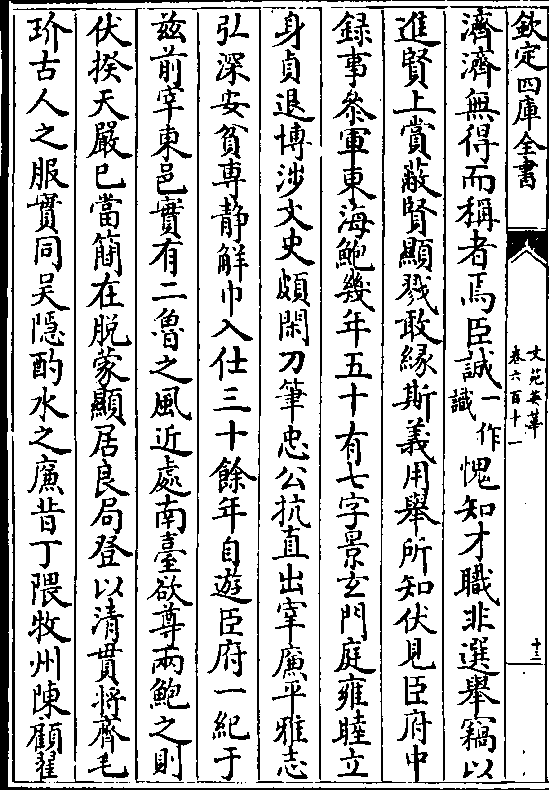 欽定四庫全書
文苑英華
卷六百十一
十三
濟濟無得而稱者焉臣誠一作識愧知才職非選舉竊以
進賢上賞蔽賢顯戮敢緣斯義用舉所知伏見臣府中
録事叅軍東海鮑幾年五十有七字景玄門庭雍睦立
身貞退博涉文史頗閑刀筆忠公抗直出宰廉平雅志
弘深安貧專静解巾入仕三十餘年自遊臣府一紀于
兹前宰東邑實有二魯之風近處南臺欲尊兩鮑之則
伏揆天嚴已當簡在脱蒙顯居良局登以清貫將齊毛
玠古人之服實同吴隱酌水之廉昔丁隈牧州陳顧翟